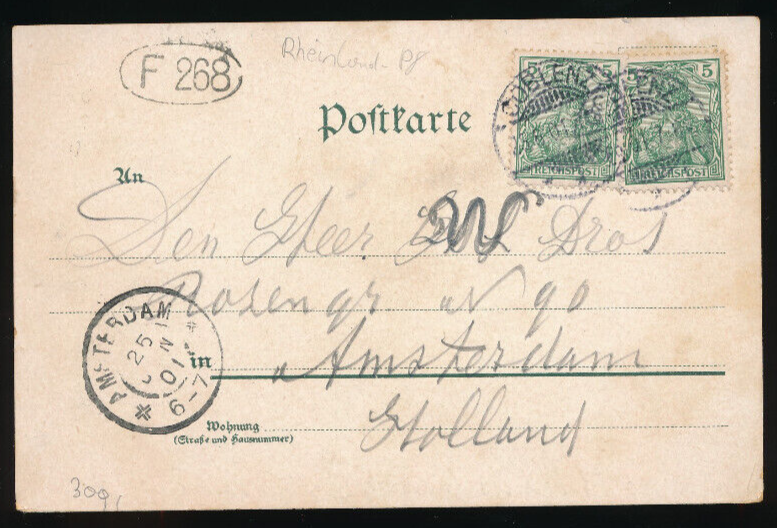 F 268
Rheinland-Pf
Postkarte
5 5
5 5
COBLENZ
REICHSPOST
REICHSPOST
An
Den Heer Dros
Rozengr. N 90
in Amsterdam
Holland
AMSTERDAM
25
6-7
Wohnung
(Straße und Hausnummer)
309